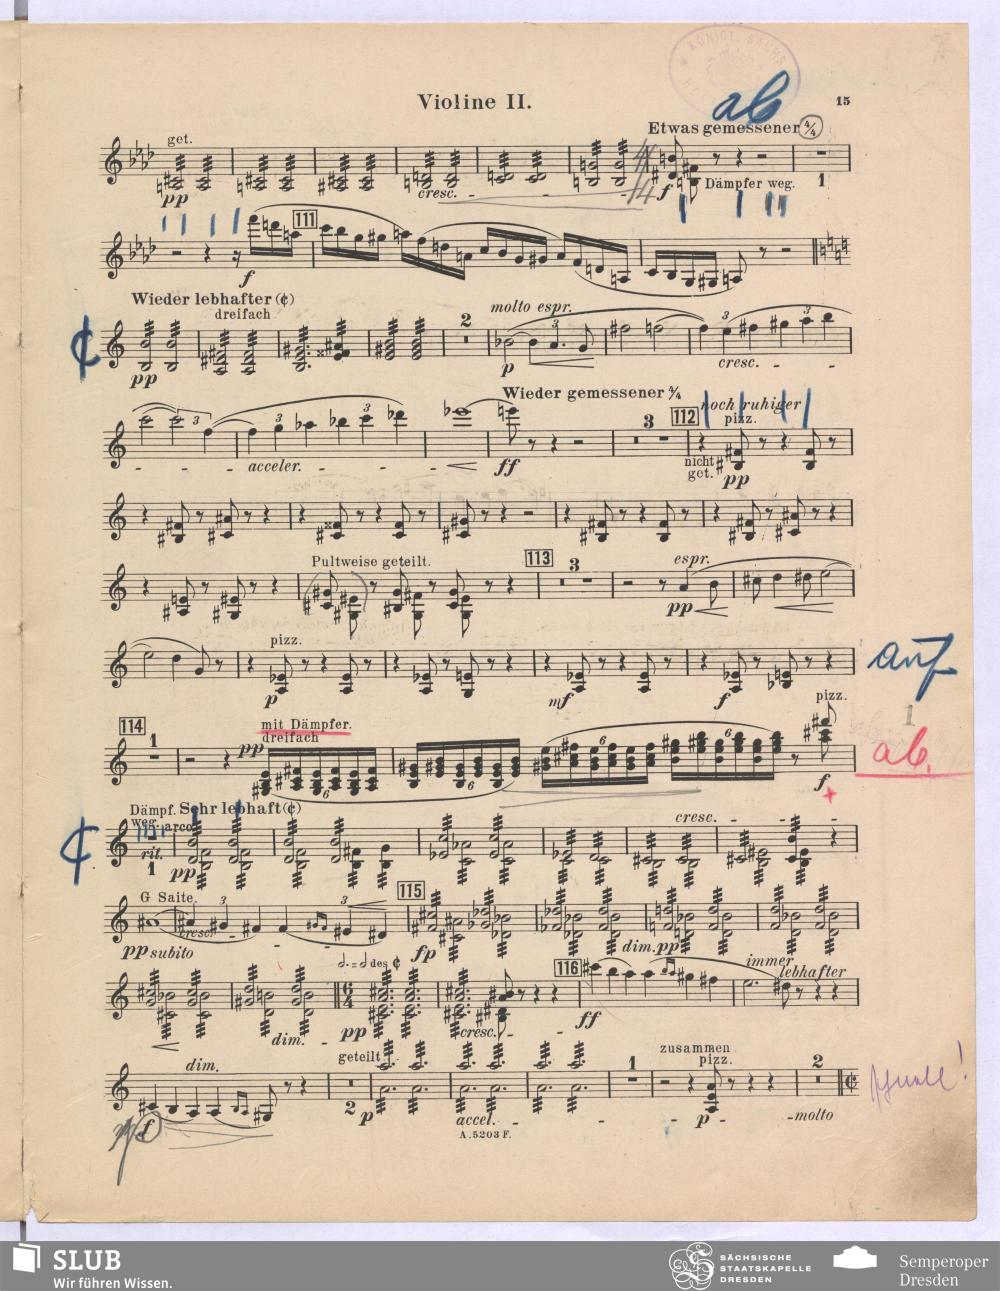 KÖNIGL. SÄCHS.
Violine II.
ab
15
get.
Etwas gemessener 4/4
pp
cresc.
4/4
f
Dämpfer weg.
1
111
f
Wieder lebhafter (¢)
dreifach
molto espr.
¢
2
3
3
pp
p
cresc.
Wieder gemessener 4/4
noch ruhiger
3
3
3
3
112
pizz.
acceler.
ff
nicht
get.
pp
Pultweise geteilt.
113
3
espr.
pp
pizz.
auf
p
mf
f
pizz.
114
1
mit Dämpfer.
dreifach
1
pp
6
6
6
6
ab.
f
+
Dämpf.
weg.
Sehr lebhaft (¢)
arco
cresc.
¢
rit.
1
pp
G Saite.
3
3
115
cresc.
pp subito
fp
dim. pp
des ¢
6/4
116
immer
lebhafter
dim.
pp
cresc.
ff
dim.
geteilt
1
zusammen
pizz.
2
2
p
accel.
p
molto
f
A. 5203 F.
SLUB
Wir führen Wissen.
SÄCHSISCHE
STAATSKAPELLE
DRESDEN
Semperoper
Dresden